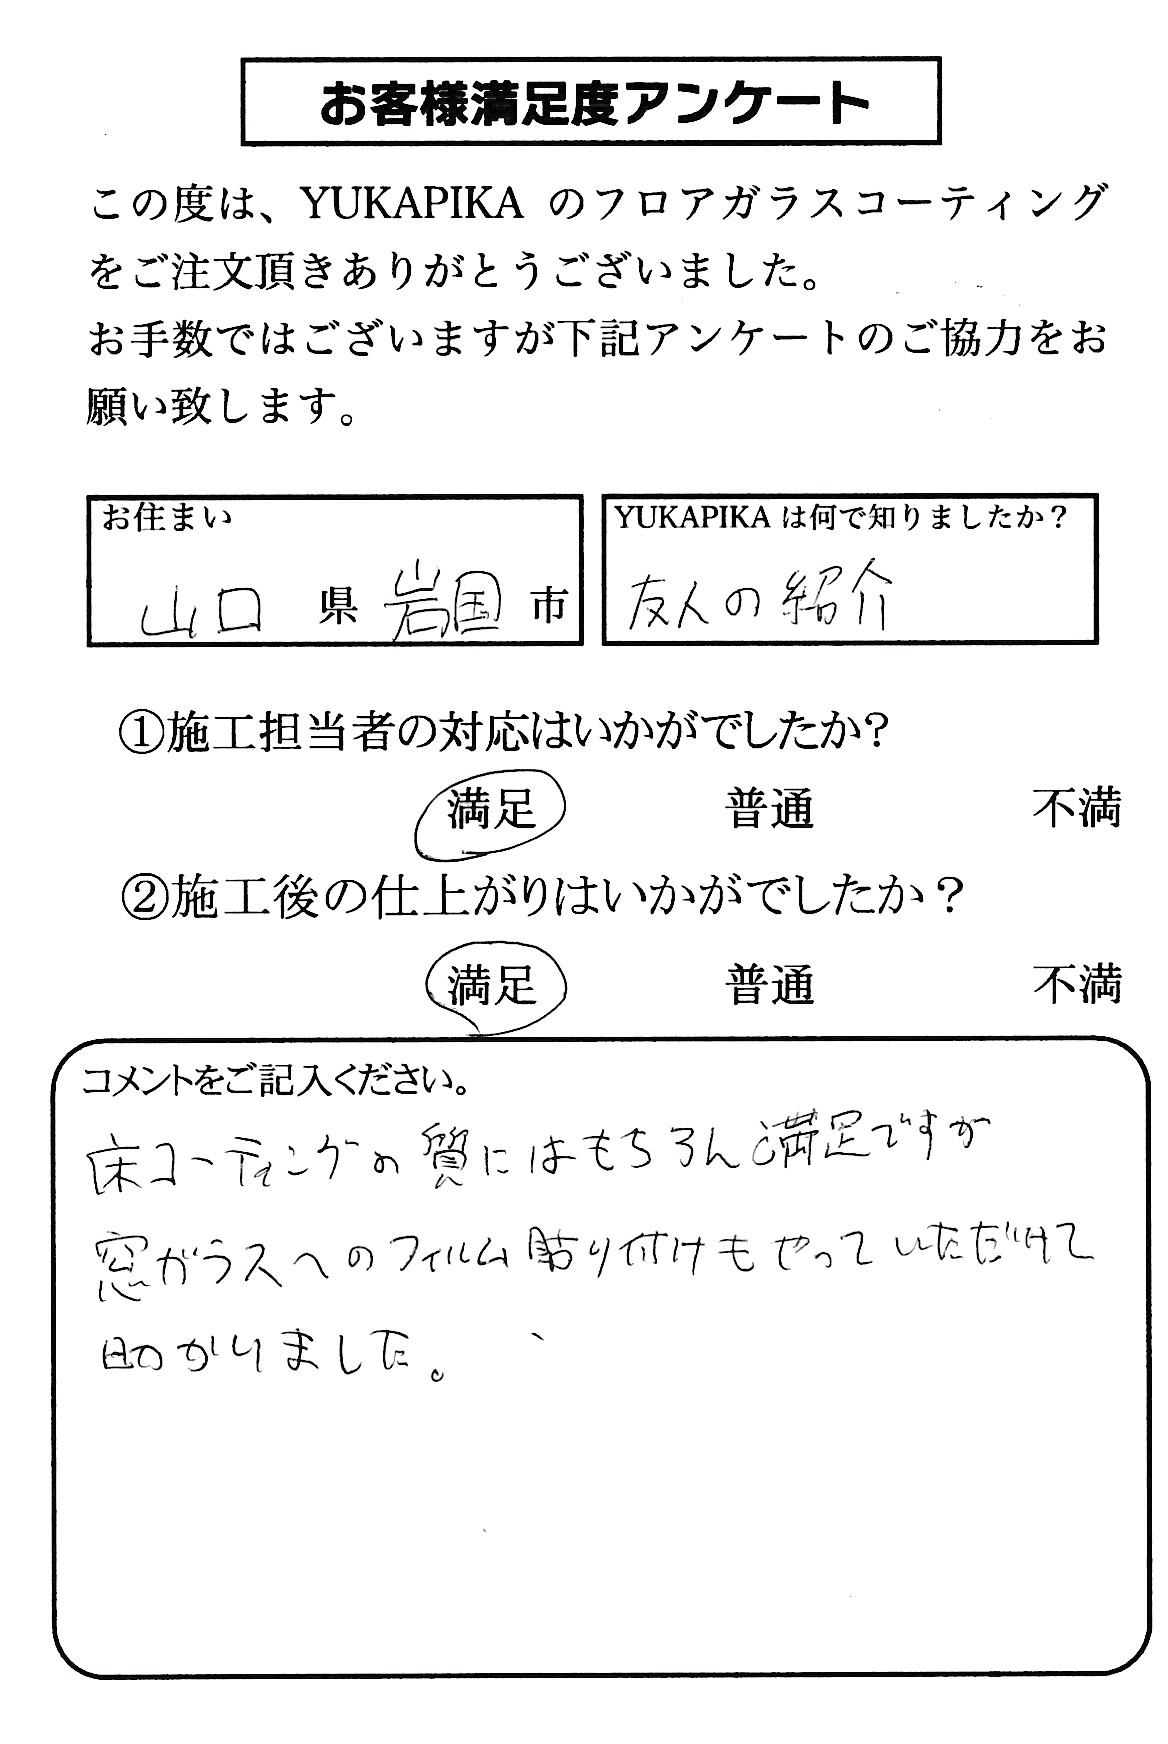 お客様満足度アンケート
この度は、YUKAPIKA のフロアガラスコーティング
をご注文頂きありがとうございました。
お手数ではございますが下記アンケートのご協力をお
願い致します。
お住まい
山口 県 岩国 市
YUKAPIKA は何で知りましたか？
友人の紹介
①施工担当者の対応はいかがでしたか?
満足 普通 不満
②施工後の仕上がりはいかがでしたか？
満足 普通 不満
コメントをご記入ください。
床コーティングの質にはもちろん満足ですが
窓ガラスへのフィルム貼り付けもやっていただけて
助かりました。